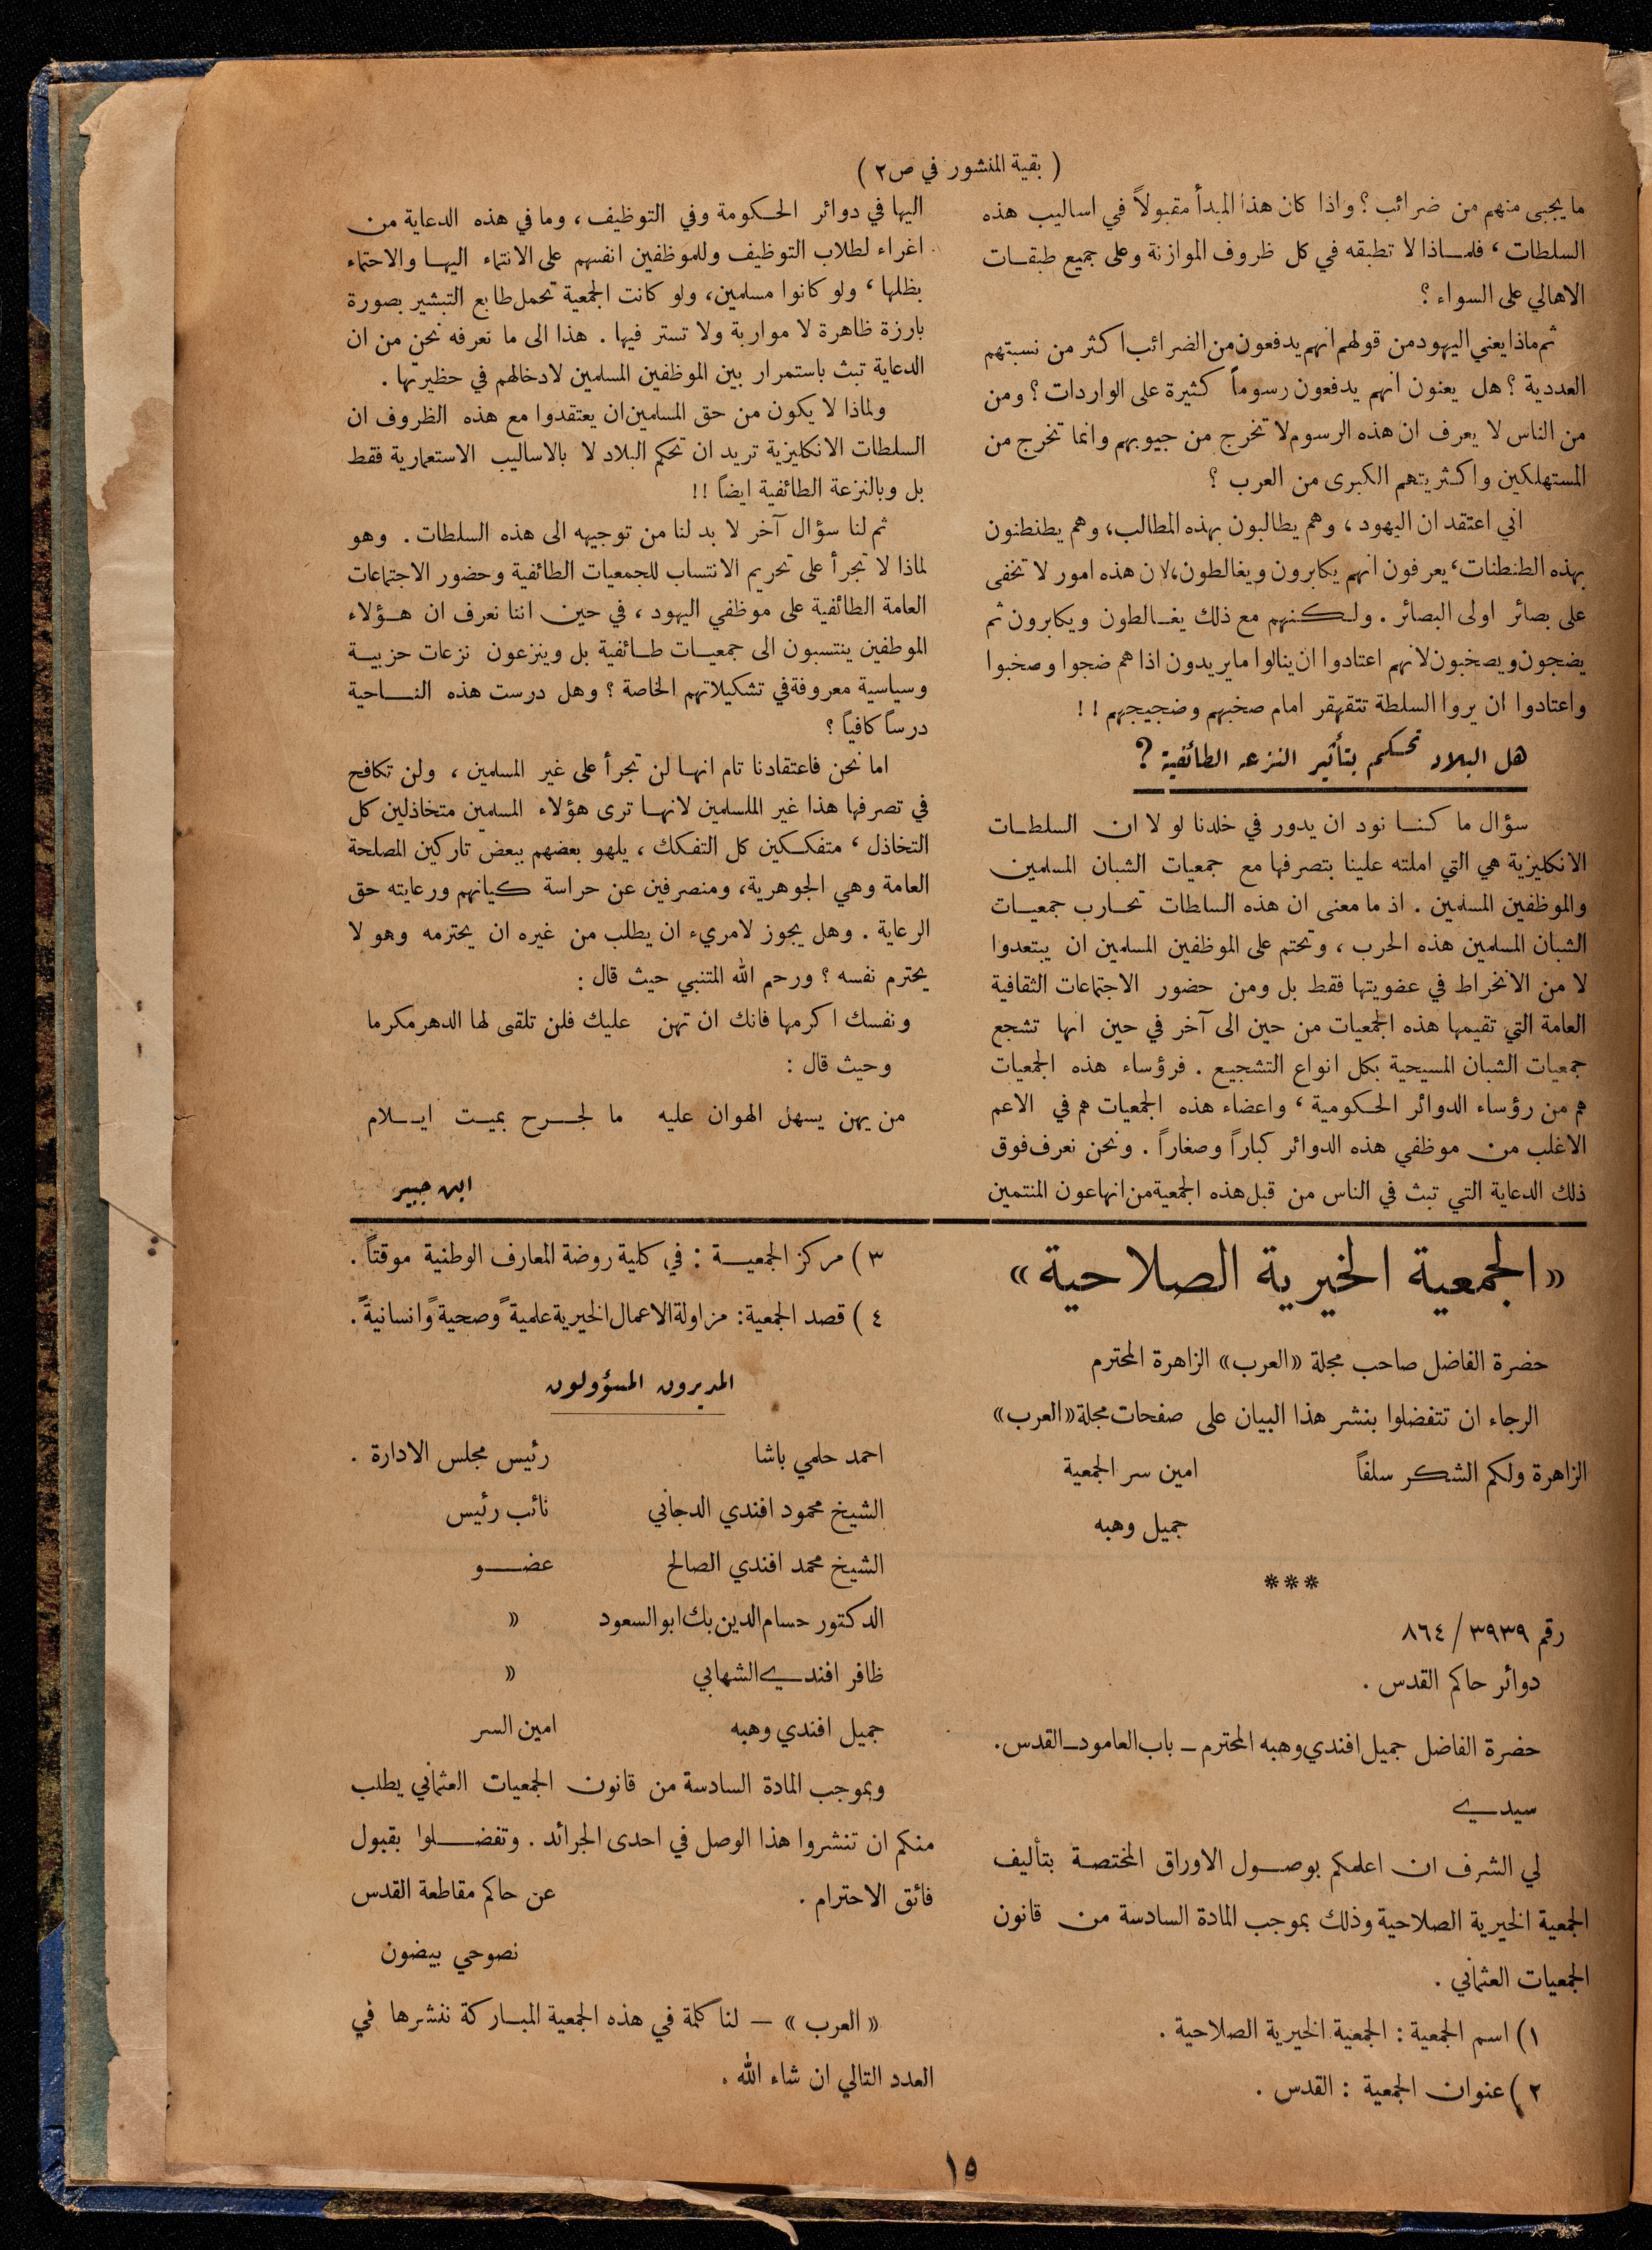 ( بقية المنشور في ص٢ )
ما يجبى منهم من ضرائب ؟ واذا كان هذا المبدأ مقبولاً في اساليب هذه
السلطات ، فلمـاذا لا تطبقه في كل ظروف الموازنة وعلى جميع طبقـات
الاهالي على السواء ؟
ثم ماذا يعني اليهود من قولهم انهم يدفعون من الضرائب اكثر من نسبتهم
العددية ؟ هل يعنون انهم يدفعون رسوماً كثيرة على الواردات ؟ ومن
من الناس لا يعرف ان هذه الرسوم لا تخرج من جيوبهم وانما تخرج من
المستهلكين واكـثريتهم الكبرى من العرب ؟
اني اعتقد ان اليهود ، وهم يطالبون بهذه المطالب، وهم يطنطنون
بهذه الطنطنات، يعرفون انهم يكابرون ويغالطون، لان هذه امور لا تخفى
على بصائر اولى البصائر . ولـكـنهم مع ذلك يغـالطون ويكابرون ثم
يضجون ويصخبون لانهم اعتادوا ان ينالوا ما يريدون اذا هم ضجوا وصخبوا
واعتادوا ان يروا السلطة تتقهقر امام صخبهم وضجيجهم ! !
هل البلاد تحكم بتأثير النزعه الطائفية ؟
سؤال ما كـنـا نود ان يدور في خلدنا لو لا ان السلطـات
الانكليزية هي التي املته علينا بتصرفها مع جمعيات الشبان المسلمين
والموظفين المسلمين . اذ ما معنى ان هذه السلطات تحـارب جمعيـات
الشبان المسلمين هذه الحرب ، وتحتم على الموظفين المسلمين ان يبتعدوا
لا من الانخراط في عضويتها فقط بل ومن حضور الاجتماعات الثقافية
العامة التي تقيمها هذه الجمعيات من حين الى آخر في حين انها تشجع
جمعيات الشبان المسيحية بكل انواع التشجيع . فرؤساء هذه الجمعيات
هم من رؤساء الدوائر الحـكومية ، واعضاء هذه الجمعيات هم في الاعم
الاغلب من موظفي هذه الدوائر كباراً وصغاراً . ونحن نعرف فوق
ذلك الدعاية التي تبث في الناس من قبل هذه الجمعية من انها عون المنتمين
اليها في دوائر الحـكومة وفي التوظيف ، وما في هذه الدعاية من
اغراء لطلاب التوظيف وللموظفين انفسهم على الانتماء اليهـا والاحتماء
بظلها ، ولو كانوا مسلمين ، ولو كانت الجمعية تحمل طابع التبشير بصورة
بارزة ظاهرة لا مواربة ولا تستر فيها . هذا الى ما نعرفه نحن من ان
الدعاية تبث باستمرار بين الموظفين المسلمين لادخالهم في حظيرتها .
ولماذا لا يكون من حق المسلمين ان يعتقدوا مع هذه الظروف ان
السلطات الانكليزية تريد ان تحكم البلاد لا بالاساليب الاستعمارية فقط
بل وبالنزعة الطائفية ايضاً !!
ثم لنا سؤال آخر لا بد لنا من توجيهه الى هذه السلطات . وهو
لماذا لا تجرأ على تحريم الانتساب للجمعيات الطائفية وحضور الاجتماعات
العامة الطائفية على موظفي اليهود ، في حين اننا نعرف ان هـؤلاء
الموظفين ينتسبون الى جمعيـات طـائفية بل وينزعون نزعات حزبيـة
وسياسية معروفة في تشكيلاتهم الخاصة ؟ وهل درست هذه النـاحية
درساً كافياً ؟
اما نحن فاعتقادنا تام انهـا لن تجرأ على غير المسلمين ، ولن تكافح
في تصرفها هذا غير الملسلمين لانهـا ترى هؤلاء المسلمين متخاذلين كل
التخاذل ، متفككين كل التفكك ، يلهو بعضهم ببعض تاركين المصلحة
العامة وهي الجوهرية ، ومنصرفين عن حراسة كيانهم ورعايته حق
الرعاية . وهل يجوز لامريء ان يطلب من غيره ان يحترمه وهو لا
يحترم نفسه ؟ ورحم الله المتنبي حيث قال :
ونفسك اكرمها فانك ان تهن عليك فلن تلقى لها الدهر مكرما
وحيث قال :
من يهن يسهل الهوان عليه ما لجـرح بميت ايـلام
ابن جبير
«الجمعية الخيرية الصلاحية»
حضرة الفاضل صاحب مجلة «العرب» الزاهرة المحترم
الرجاء ان تتفضلوا بنشر هذا البيان على صفحات مجلة «العرب»
الزاهرة ولكم الشكر سلفاً امين سر الجمعية
جميل وهبه
***
رقم ٣٩٣٩ / ٨٦٤
دوائر حاكم القدس .
حضرة الفاضل جميل افندي وهبه المحترم ـ باب العامود ـ القدس .
سيدي
لي الشرف ان اعلمكم بوصـول الاوراق المختصة بتأليف
الجمعية الخيرية الصلاحية وذلك بموجب المادة السادسة من قانون
الجمعيات العثماني .
١ ) اسم الجمعية : الجمعية الخيرية الصلاحية .
٢ ) عنوان الجمعية : القدس .
٣ ) مركز الجمعيـة : في كلية روضة المعارف الوطنية موقتاً .
٤ ) قصد الجمعية : مزاولة الاعمال الخيرية علميةً وصحيةً وانسانيةً .
المديرون المسؤولون
احمد حلمي باشا رئيس مجلس الادارة .
الشيخ محمود افندي الدجاني نائب رئيس
الشيخ محمد افندي الصالح عضـو
الدكتور حسام الدين بك ابو السعود »
ظافر افندي الشهابي »
جميل افندي وهبه امين السر
وبموجب المادة السادسة من قانون الجمعيات العثماني يطلب
منكم ان تنشروا هذا الوصل في احدى الجرائد . وتفضـلوا بقبول
فائق الاحترام . عن حاكم مقاطعة القدس
نصوحي بيضون
« العرب » — لنا كلمة في هذه الجمعية المبـاركة ننشرها في
العدد التالي ان شاء الله .
١٥